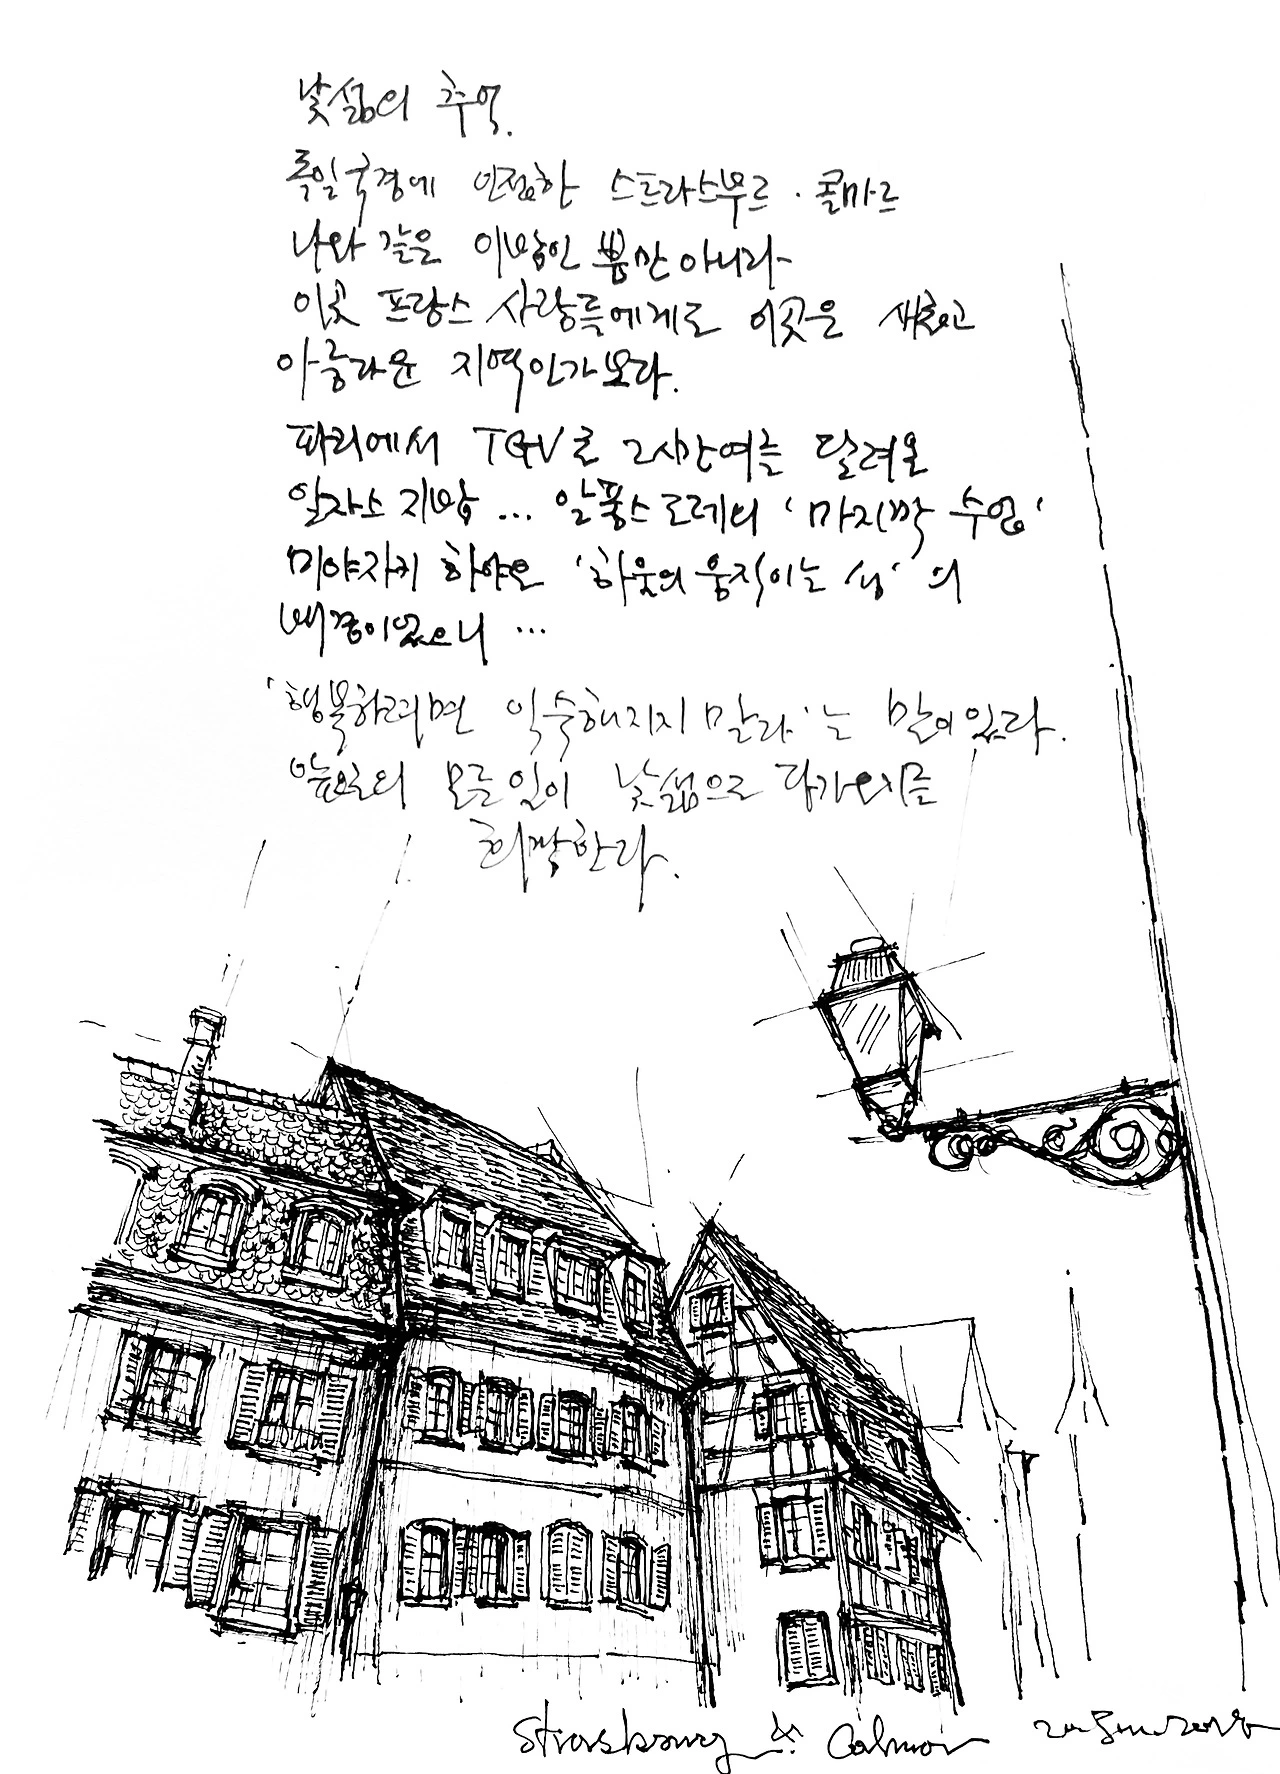 낯섦의 추억.
독일국경에 인접한 스트라스부르 · 콜마르
나와 같은 이방인 뿐만 아니라
이곳 프랑스 사람들에게도 이곳은 새롭고
아름다운 지역인가보다.
파리에서 TGV로 2시간여를 달려온
알자스 지방 ... 알퐁스 도레의 '마지막 수업'
미야자키 하야오 '하울의 움직이는 성'의
배경이었으니 ...
'행복하려면 익숙해지지 말라'는 말이있다.
의 모든일이 낯섦으로 다가오기를
희망한다.
Strasbourg & Colmar